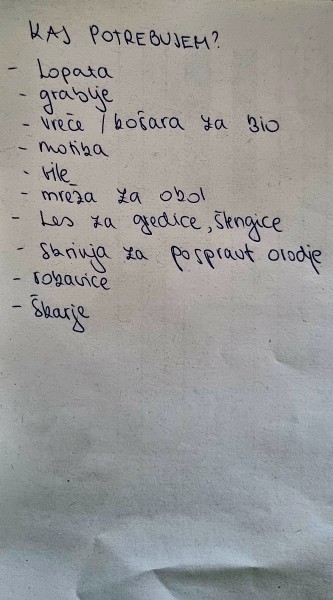 KAJ POTREBUJEM?
- Lopata
- grablje
- vreče / košara za BIO
- motika
- vile
- mreža za obol
- Les za gredice, štengice
- škrinja za pospravt orodje
- rokavice
- škarje